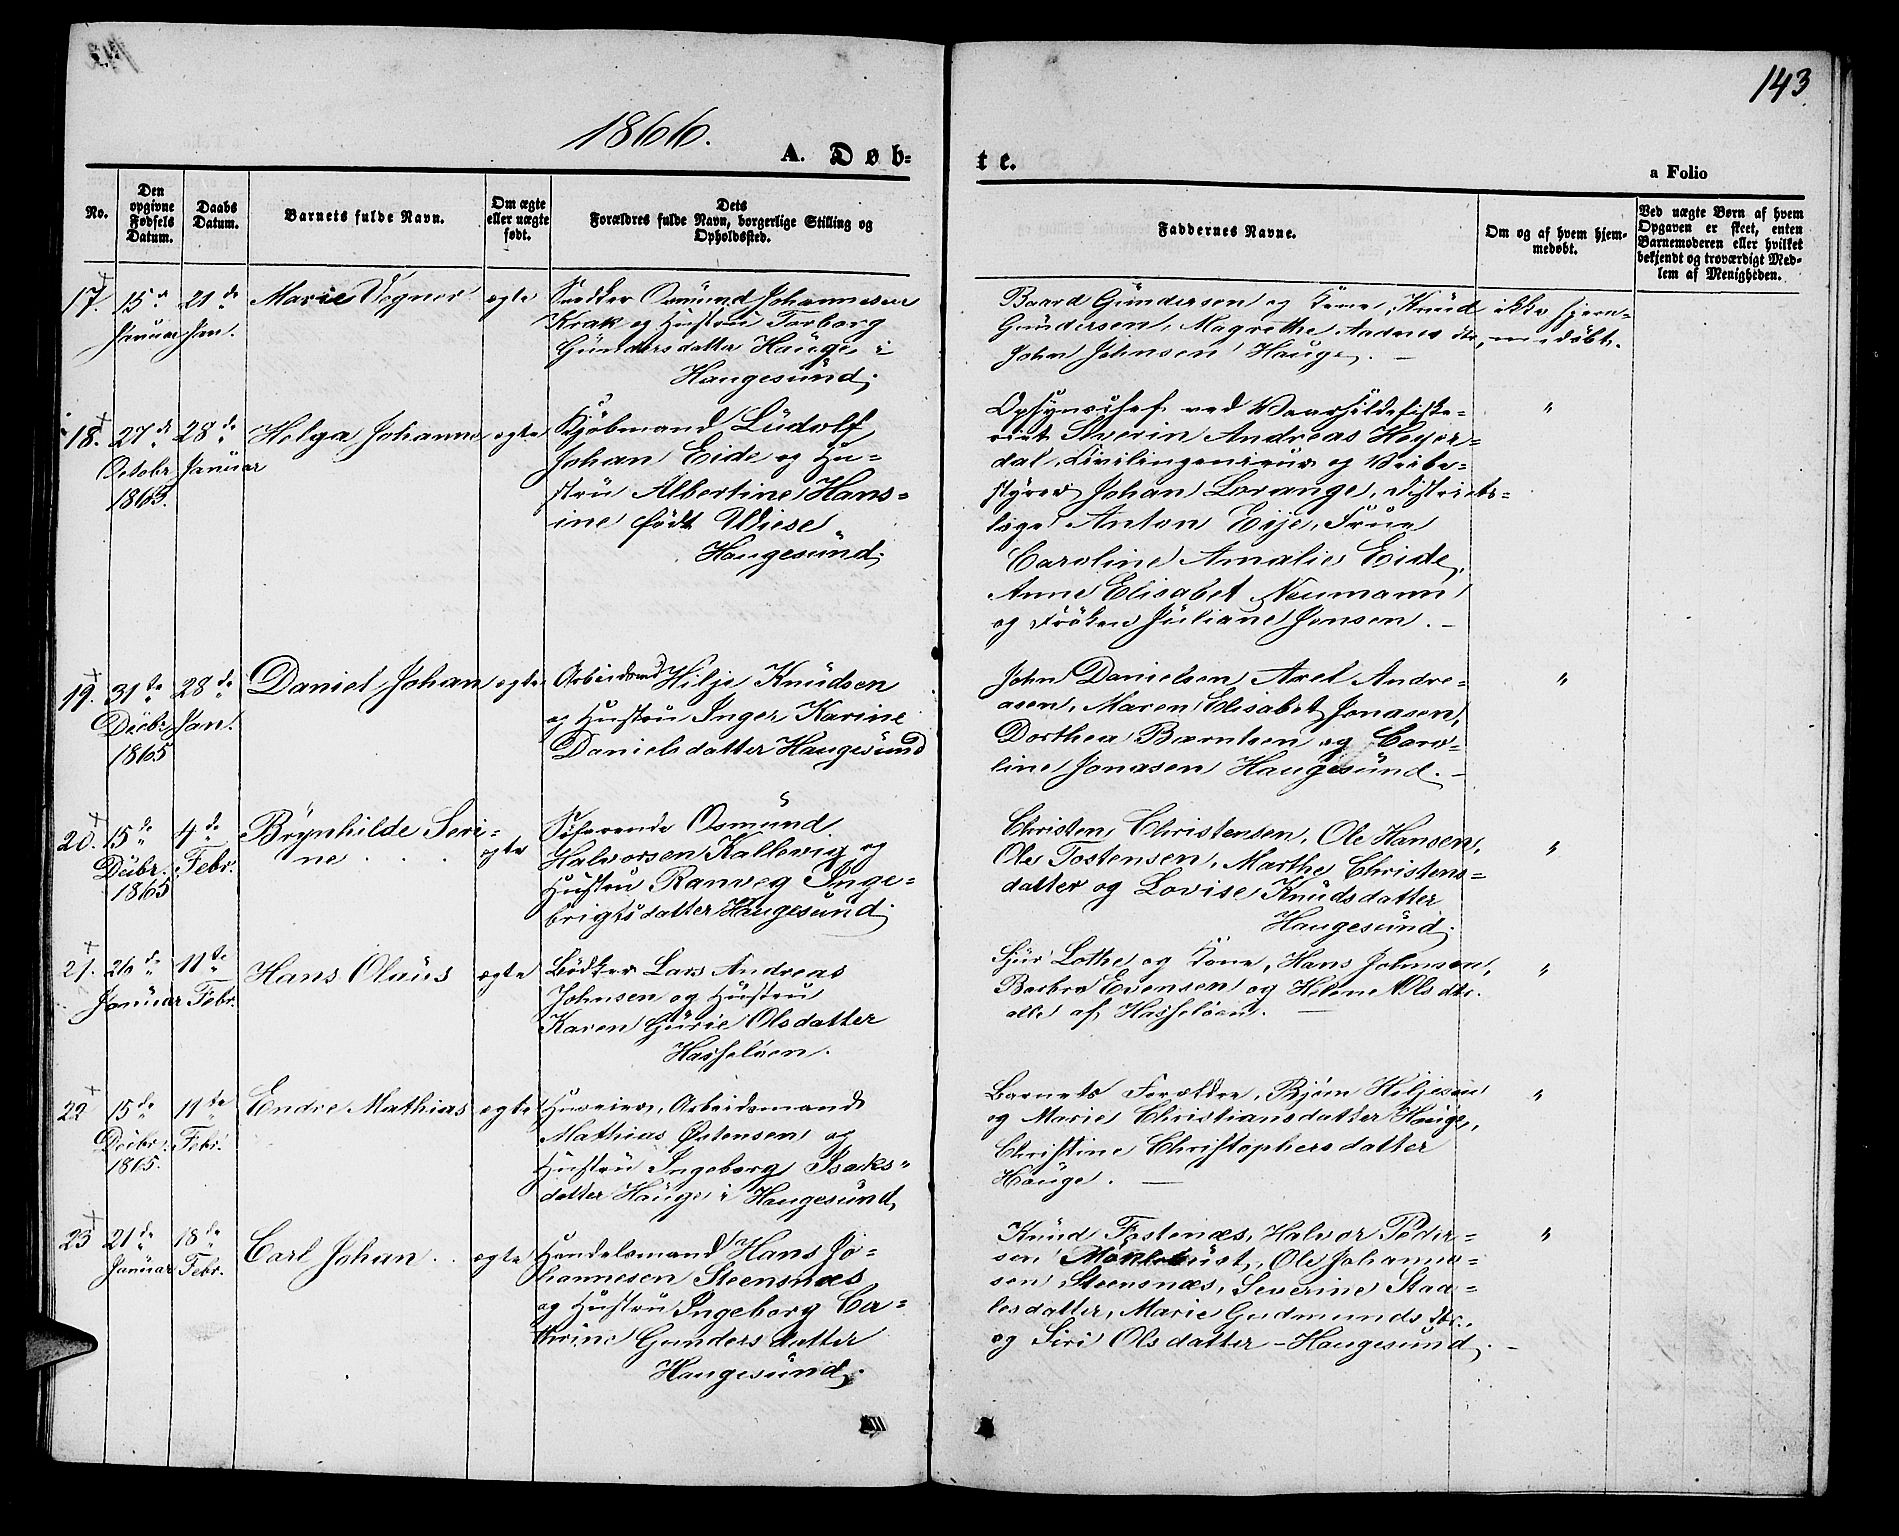 143
1866.
A. Døb-
te.
a Folio
No.
Den opgivne Fødsels Datum.
Daabs Datum.
Barnets fulde Navn.
Om ægte eller uægte født.
Dets Forældres fulde Navn, borgerlige Stilling og Opholdssted.
Faddernes Navne.
Om og af hvem hjemmedøbt.
Ved uægte Børn af hvem Opgaven er skeet, enten Barnemoderen eller hvilket bekjendt og troværdigt Medlem af Menigheden.
17.
15de
Januar
21de
Jan.
Marie Vegner
ægte
Snedker Osmund Johannesen
Krak og Hustru Torborg
Gundersdatter Hauge i
Haugesund.
Baard Gundersen og Kone, Knud
Gundersen, Magrethe Aadnesdtr,
John Johnsen Hauge. —
ikke hjem-
medøbt.
18.
27de
Octobr
1865.
28de
Januar
Helga Johanne
ægte
Kjøbmand Ludolf
Johan Eide og Hu-
stru Albertine Hans-
ine født Wiese
Haugesund.
Opsynschef ved Vaarsildefiske-
riet Severin Andreas Heyer-
dal, Civilingenieur og
Johan Lorange, Districts-
læge Anton Eije, Frue
Caroline Amalie Eide,
Anne Elisabet Neumann
og Frøken Juliane Jensen. —
"
19.
31te
Decbr
1865
28de
Jan.
Daniel Johan
ægte
Arbeidsmd Hilje Knudsen
og Hustru Inger Karine
Danielsdatter Haugesund
John Danielsen, Axel Andre-
asen, Maren Elisabet Jonasen,
Dorthea Bærntsen og Caro-
line Jonasen Haugesund. —
"
20.
15de
Decbr.
1865
4de
Febr.
Brynhilde Seri-
ne . . .
ægte
Søfarende Osmund
Halvorsen Kallevig og
Hustru Ranveg Inge-
brigtsdatter Haugesund.
Christen Christensen, Ole Hansen,
Ole Tostensen, Marthe Christens-
datter og Lovise Knudsdatter
Haugesund.
"
21.
26de
Januar
11te
Febr.
Hans Olaus
ægte
Bødker Lars Andreas
Johnsen og Hustru
Karen Gurie Olsdatter
Hasseløen.
Sjur Lothe og Kone, Hans Johnsen,
Barbro Evensen og Helene Olsdtr.
alle af Hasseløen. —
"
22
15de
Decbr.
1865.
11te
Febr.
Endre Mathias
ægte
Huseier, Arbeidsmand
Mathias Østensen og
Hustru Ingeborg Isaks-
datter Hauge i Haugesund,
Barnets Forældre, Bjørn Hiljesen
og Marie Christiansdatter Hauge,
Christine Christophersdatter
Hauge. —
"
23
21de
Januar
18de
Febr.
Carl Johan . .
ægte
Handelsmand Hans Jo-
hannesen Steensnæs
og Hustru Ingeborg Ca-
thrine Gundersdatter
Haugesund.
Knud Fostenæs, Halvor Peder-
sen Ole Johanne-
sen Steensnæs, Severine Staa-
lesdatter, Marie Gudmundsdtr.,
og Siri Olsdatter – Haugesund. —
"